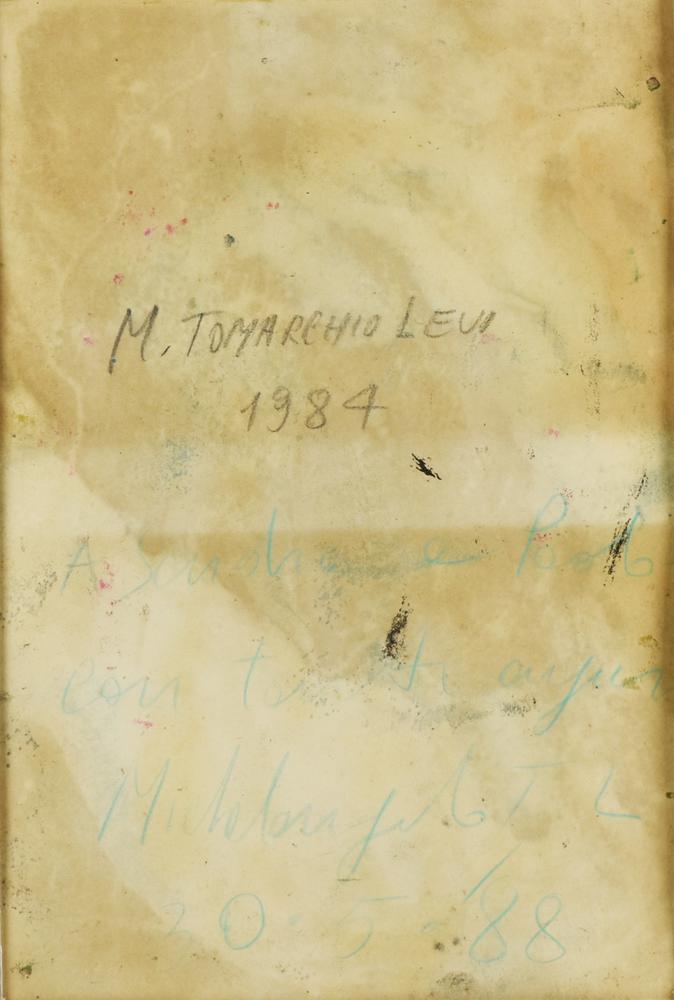 M. TOMARCHIO LEVI
1984
A Sandra e Paolo
con tanti auguri
Michelangelo T L
20-5-'88